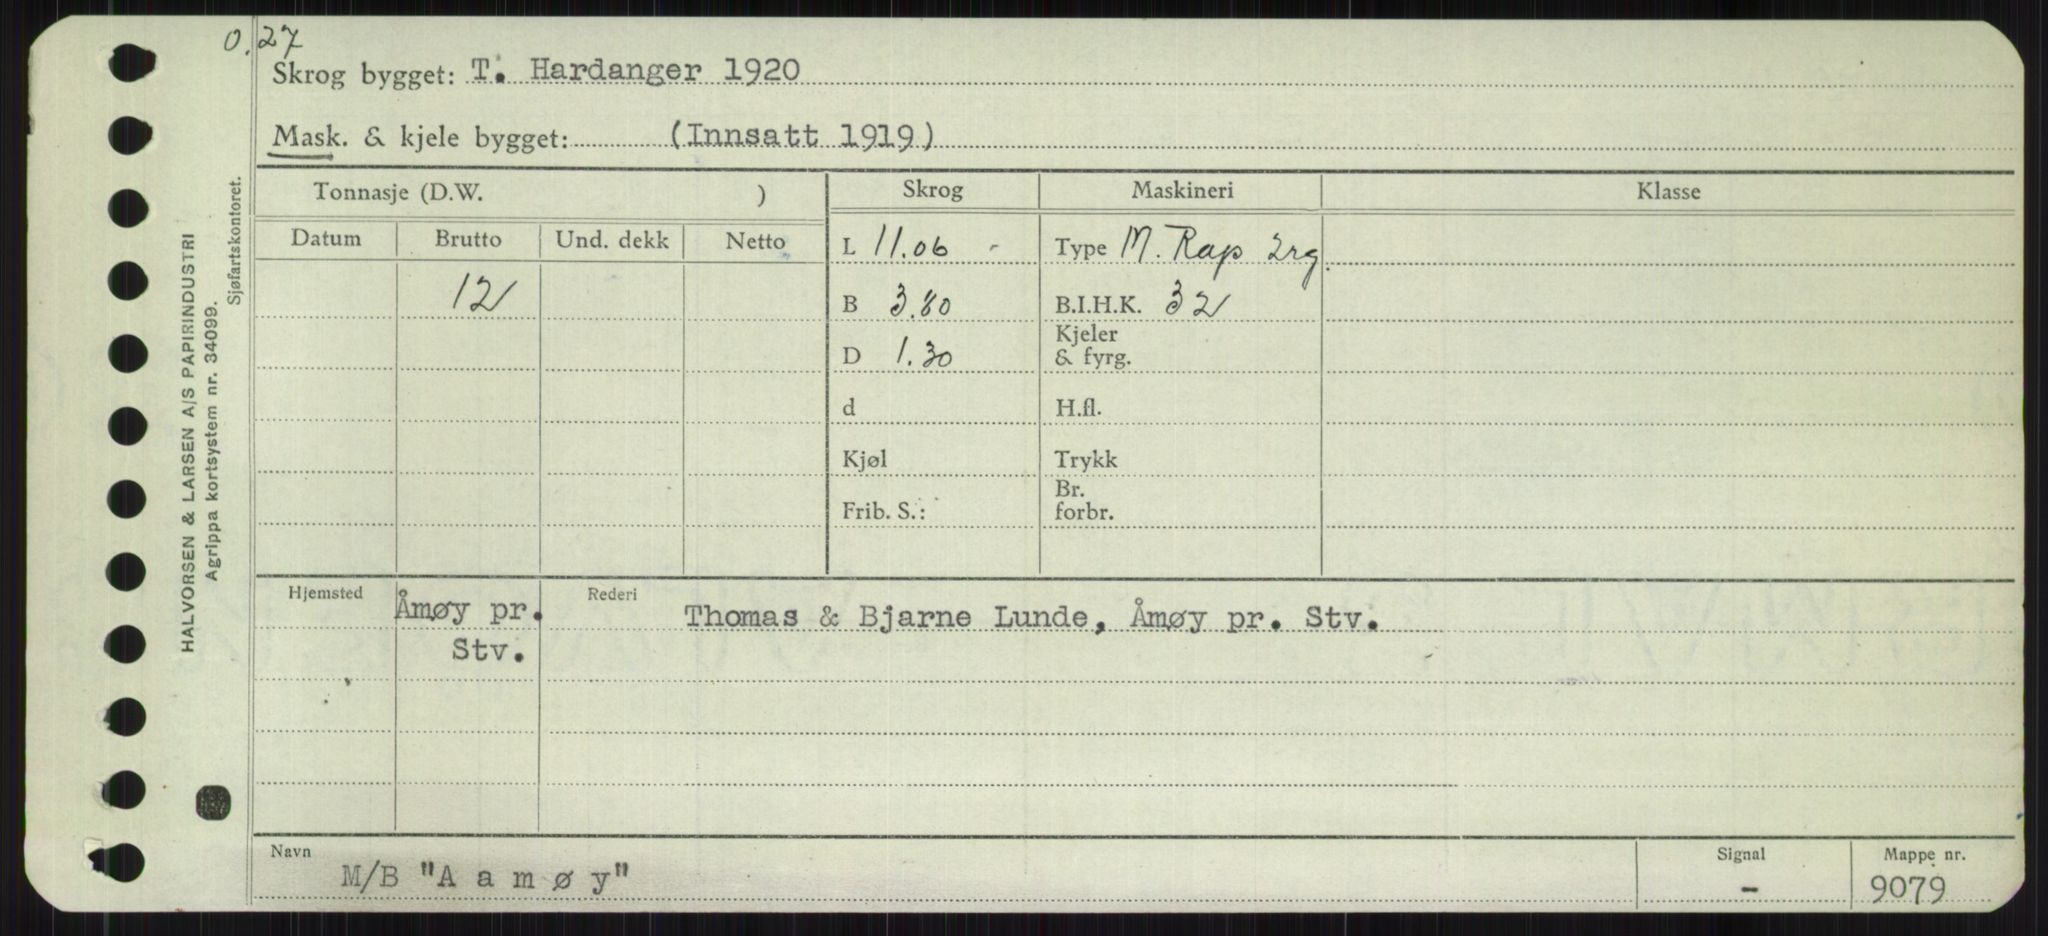 O. 27
Skrog bygget: T. Hardanger 1920
Mask. & kjele bygget: (Innsatt 1919)
HALVORSEN & LARSEN A/S PAPIRINDUSTRI
Agrippa kortsystem nr. 34099.
Sjøfartskontoret.
Tonnasje (D.W. ) Skrog Maskineri Klasse
Datum Brutto Und. dekk Netto L 11.06 Type M. Rap 2rg.
12 B 3.80 B.I.H.K. 32
D 1.30 Kjeler
& fyrg.
d H.fl.
Kjøl Trykk
Frib. S.: Br.
forbr.
Hjemsted Åmøy pr. Rederi Thomas & Bjarne Lunde, Åmøy pr. Stv.
Stv.
Navn Signal Mappe nr.
M/B "A a m ø y" - 9079